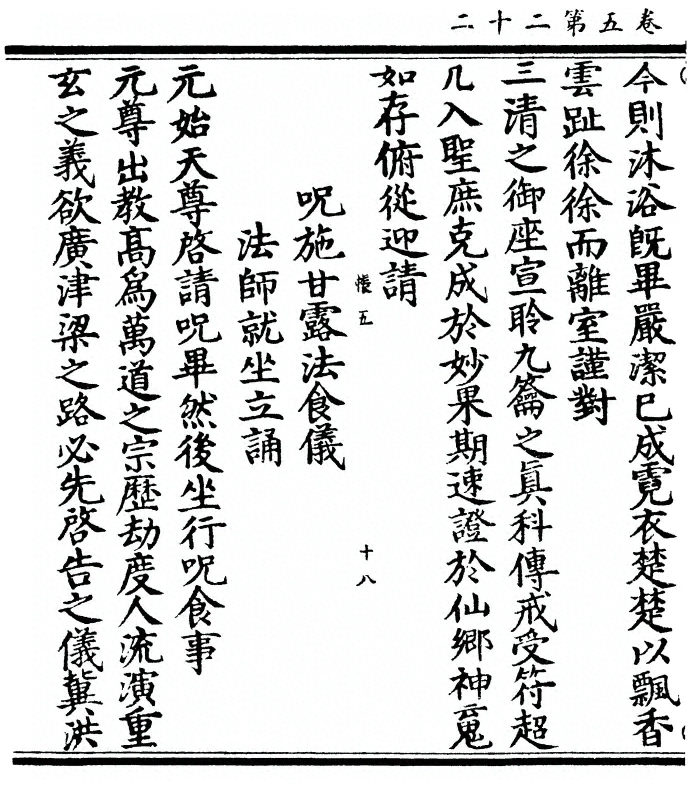 卷五第二十二
今則沐浴既畢嚴潔已成霓衣楚楚以飄香
雲趾徐徐而離室謹對
三清之御座宣聆九籥之眞科傳戒受符超
凡入聖庶克成於妙果期速證於仙鄉神䰟
如存俯從迎請
悵五
十八
呪施甘露法食儀
法師就坐立誦
元始天尊啓請呪畢然後坐行呪食事
元尊出教高爲萬道之宗歷劫度人流演重
玄之義欲廣津梁之路必先啓告之儀冀洪